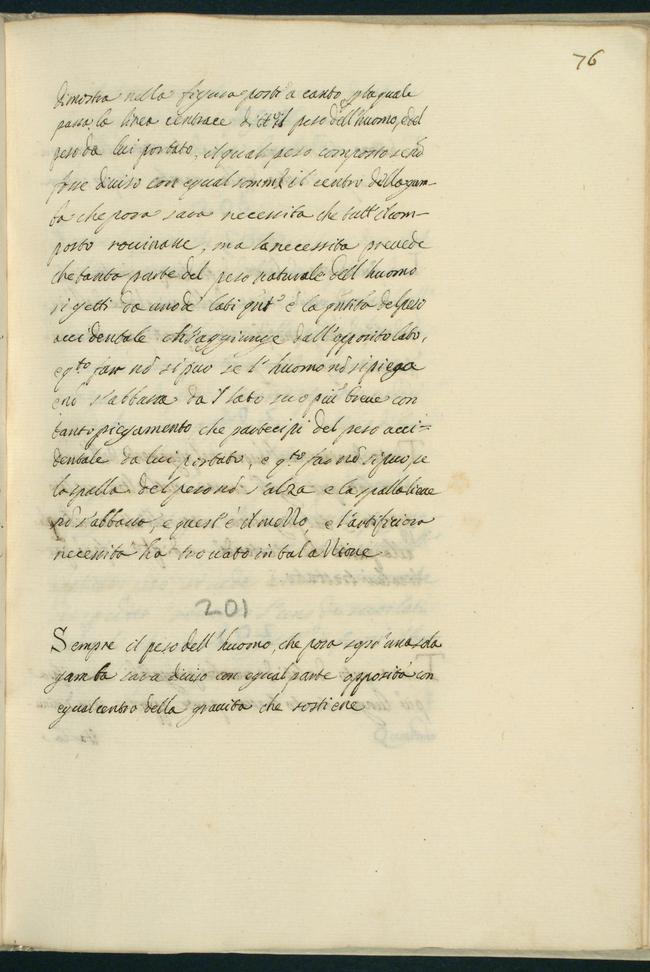 76
dimostra nella figura posti a canto, p la quale
passa la linea centrale di tt.º il peso dell'huomo, e del
peso da lui portato, il qual peso composto se nõ
fosse diuiso con equal somma il centro della gam-
ba che posa saria necessita che tutt'il com-
posto rouinasse, ma la necessita prouede
che tanta parte del peso naturale dell'huomo
si getti da uno de' lati qnt' è la qntità del peso
accidentale ch's'aggiunge dall'opposito lato,
e q.to far nõ si puo se l'huomo nõ si piega
e nõ s'abbassa da 'l lato suo piu lieue con
tanto piegamento che partecipi del peso acci=
dentale da lui portato, e q.to far nõ si puo, se
la spalla del peso nõ s'alza e la spalla lieue
nõ s'abbassa, e quest'è il mezzo, e l'artificiosa
necessita ha trouato in tal attione
201
Sempre il peso dell'huomo, che posa sopr'una sola
gamba sara diuiso con equal parte opposita con
equal centro della grauita che sostiene